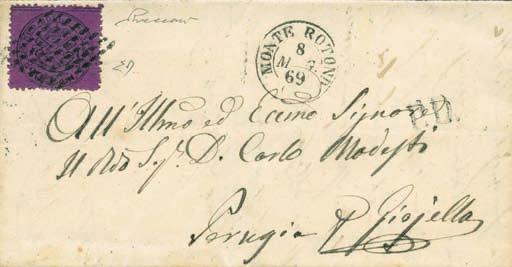 MONTE ROTONDO
8
69
P.D.
All'Illmo ed Eccmo Signore
Il Rdo Sig. D. Carlo Modesti
Perugia p Giojella